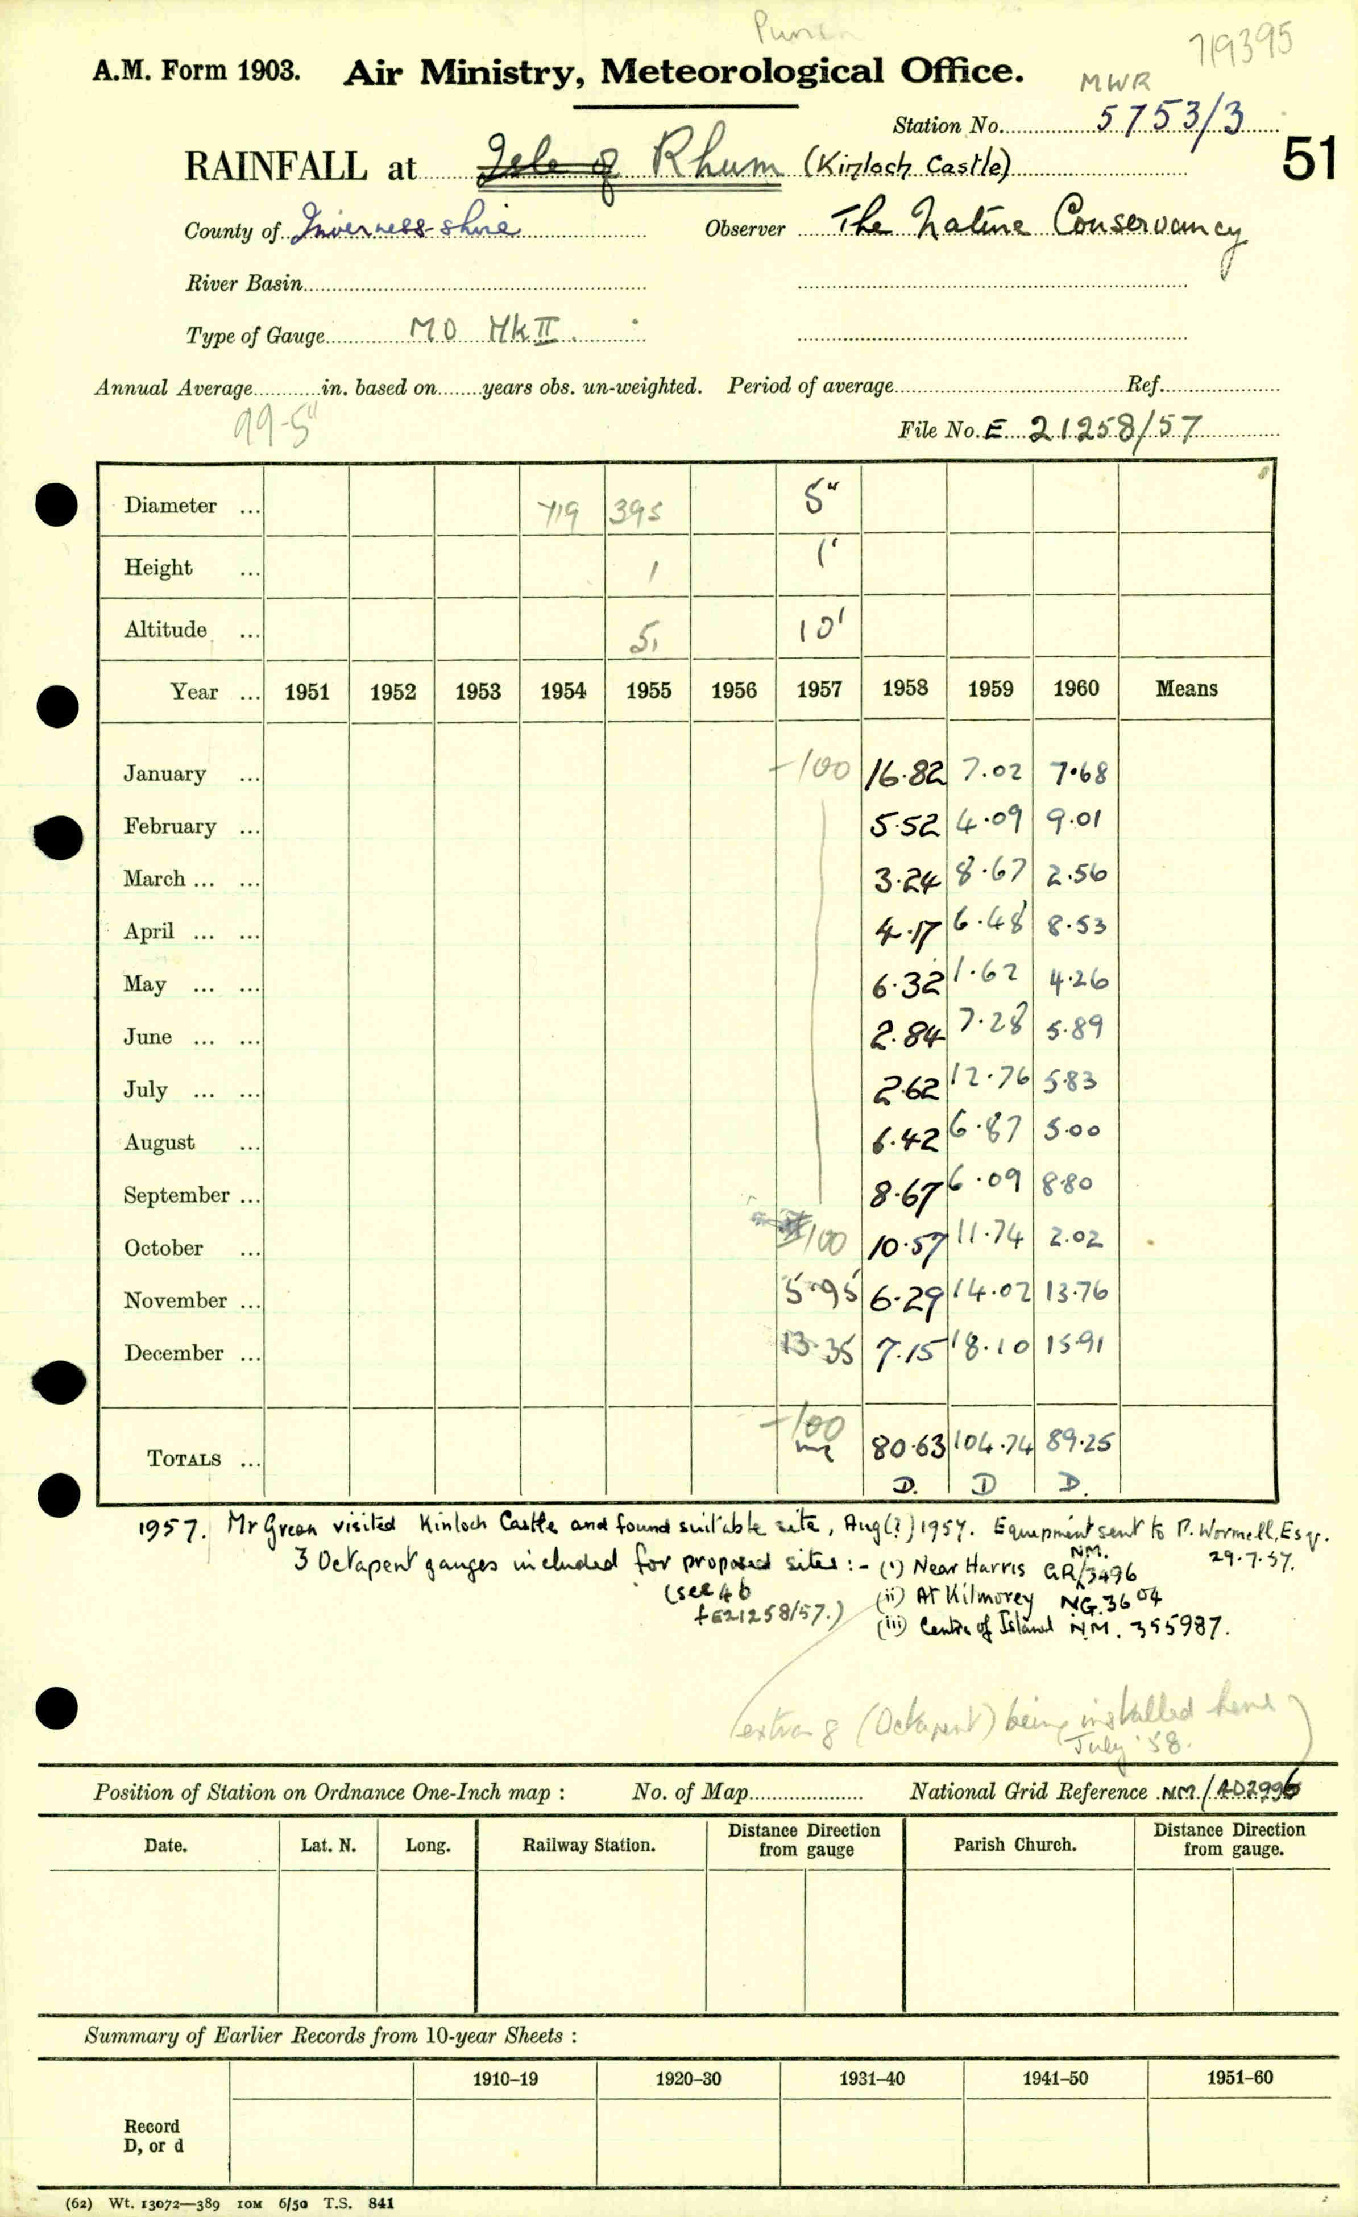 719395
A.M. Form 1903. Air Ministry, Meteorological Office.
MWR
Station No. 5753/3
51
RAINFALL at Isle of Rhum (Kinloch Castle)
County of Inverness-shire Observer The Nature Conservancy
River Basin
Type of Gauge MO Mk II.
Annual Average in. based on years obs. un-weighted. Period of average Ref.
99.5"
File No. E 21258/57
Diameter ... 719 395 5"
Height ... 1 1'
Altitude ... 5, 10'
Year ... 1951 1952 1953 1954 1955 1956 1957 1958 1959 1960 Means
January ... -100 16.82 7.02 7.68
February ... 5.52 4.09 9.01
March ... ... 3.24 8.67 2.56
April ... ... 4.17 6.48 8.53
May ... ... 6.32 1.62 4.26
June ... ... 2.84 7.28 5.89
July ... ... 2.62 12.76 5.83
August ... 6.42 6.87 5.00
September ... 8.67 6.09 8.80
October ... 100 10.57 11.74 2.02
November ... 5.95 6.29 14.02 13.76
December ... 13.35 7.15 18.10 15.91
-100
TOTALS ... 80.63 104.74 89.25
D. D D.
1957. Mr Green visited Kinloch Castle and found suitable site, Aug(?) 1957. Equipment sent to P. Wormell, Esq.
29.7.57.
3 Octapent gauges included for proposed sites:- (i) Near Harris GR/NM.3496
(see 4b (ii) At Kilmorey NG.3604
fE21258/57.) (iii) Centre of Island NM. 355987.
extra 8 (Octapent) being installed here
July '58.
Position of Station on Ordnance One-Inch map : No. of Map National Grid Reference NM/402996
Date. Lat. N. Long. Railway Station. Distance from Direction gauge Parish Church. Distance from Direction gauge.
Summary of Earlier Records from 10-year Sheets :
1910–19 1920–30 1931–40 1941–50 1951–60
Record
D, or d
(62) Wt. 13072—389 10M 6/50 T.S. 841